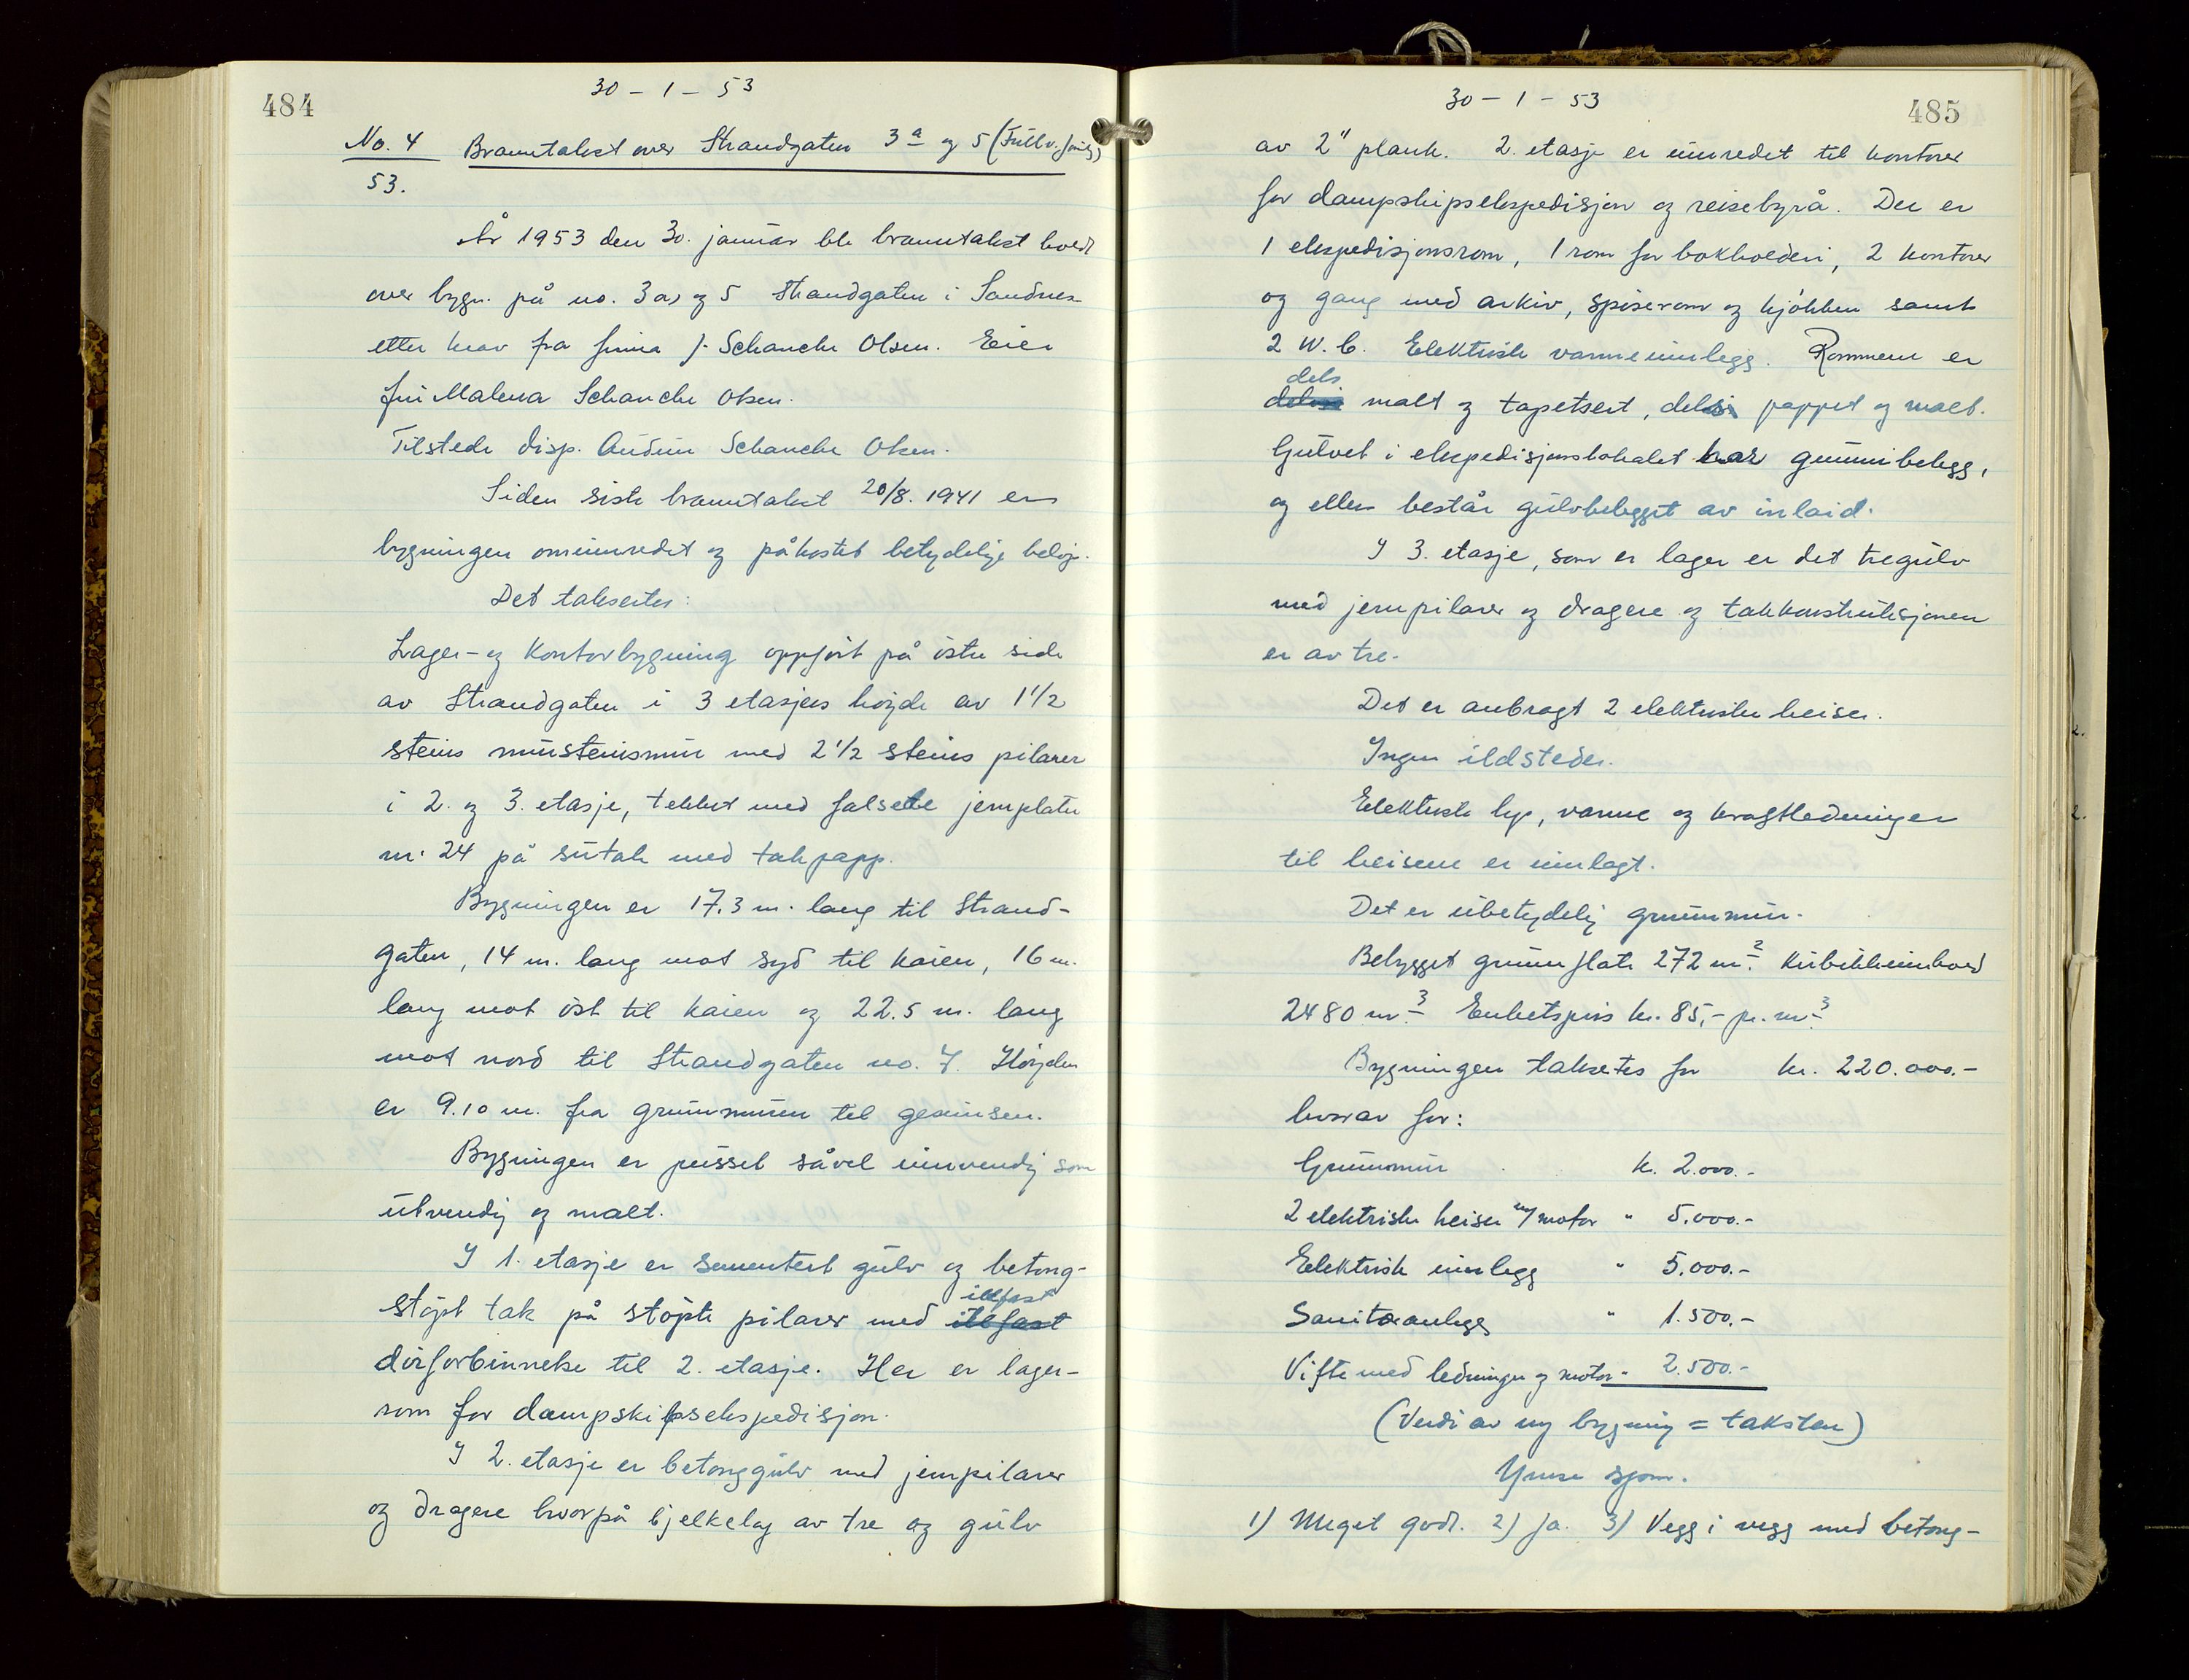 484
30 – 1 – 53
No. 4 Branntakst over Strandgaten 3a og 5 (Fullv. forsikr.)
53.
År 1953 den 30. januar ble branntakst holdt
over bygn. på no. 3a) og 5 Strandgaten i Sandnes
etter krav fra firma J. Schanche Olsen. Eier
fru Malena Schanche Olsen.
Tilstede disp. Audun Schanche Olsen.
Siden siste branntakst 20/8. 1941 er
bygningen ominnredet og påkostet betydelige beløp.
Det takseres:
Lager- og Kontorbygning oppført på østre side
av Strandgaten i 3 etasjers høyde av 1 1/2
steins mursteinsmur med 2 1/2 steins pilarer
i 2. og 3. etasje, tekket med falsete jernplater
nr. 24 på sutak med takpapp.
Bygningen er 17.3 m. lang til Strand-
gaten, 14 m. lang mot syd til kaien, 16 m.
lang mot øst til kaien og 22.5 m. lang
mot nord til Strandgaten no. 7. Høyden
er 9.10 m. fra grunnmuren til gesimsen.
Bygningen er pusset såvel innvendig som
utvendig og malt.
I 1. etasje er sementert gulv og betong-
støpt tak på støpte pilarer med ildfast
dørforbinnelse til 2. etasje. Her er lager-
rom for dampskipsekspedisjon.
I 2. etasje er betonggulv med jernpilarer
og dragere hvorpå bjelkelag av tre og gulv
485
30 – 1 – 53
av 2" plank. 2. etasje er innredet til kontorer
for dampskipsekspedisjon og reisebyrå. Der er
1 ekspedisjonsrom, 1 rom for bokholderi, 2 kontorer
og gang med arkiv, spiserom og kjøkken samt
2 W.C. Elektrisk varmeinnlegg. Rommene er
dels malt og tapetsert, dels pappet og malt.
Gulvet i ekspedisjonslokalet har gummibelegg,
og ellers består gulvbelegget av inlaid.
I 3. etasje, som er lager er det tregulv
med jernpilarer og dragere og takkonstruksjonen
er av tre.
Det er anbragt 2 elektriske heiser.
Ingen ildsteder.
Elektrisk lys, varme og kraftledninger
til heisene er innlagt.
Det er ubetydelig grunnmur.
Bebygget grunnflate 272 m². Kubikkinnhold
2480 m³. Enhetspris kr. 85,- pr. m³.
Bygningen takseres for kr. 220.000.-
hvorav for:
Grunnmur k. 2.000.-
2 elektriske heiser m/motor " 5.000.-
Elektrisk innlegg " 5.000.-
Sanitæranlegg " 1.500.-
Vifte med ledninger og motor " 2.500.-
(Verdi av ny bygning = taksten)
Ymse spm.
1) Meget godt. 2) Ja. 3) Vegg i vegg med betong-